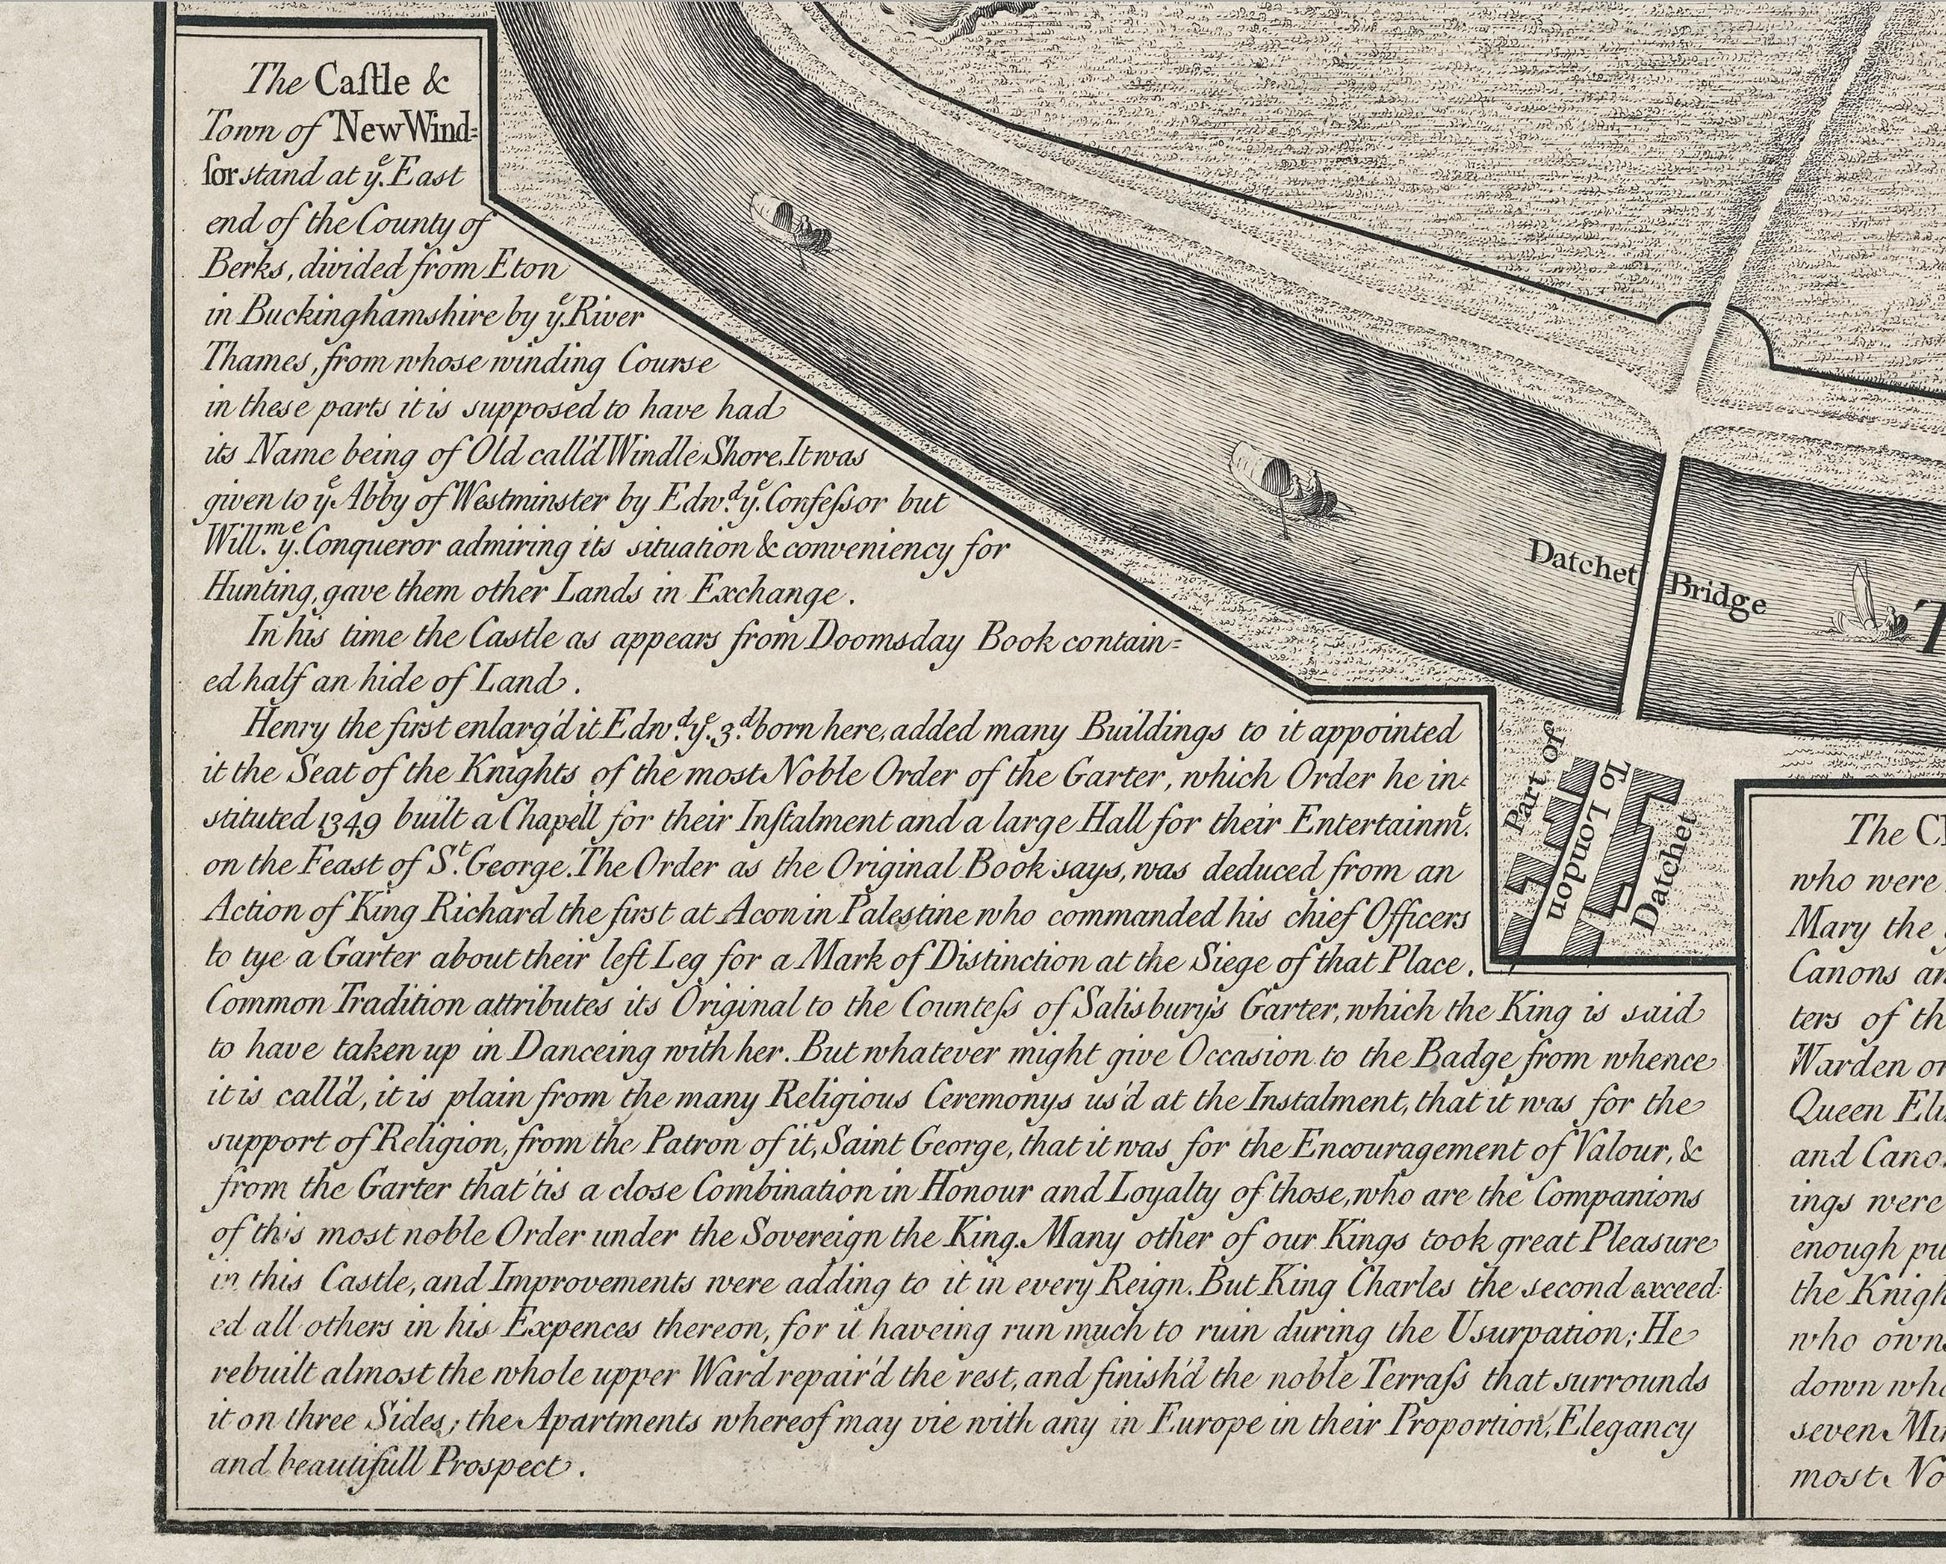 The Caſtle &
Town of New Wind=
ſor stand at yͤ. East
end of the County of
Berks, divided from Eton
in Buckinghamshire by yͤ. River
Thames, from whose winding Course
in these parts it is supposed to have had
its Name being of Old call'd Windle Shore. It was
given to yͤ Abby of Westminster by Edw.ᵈ yͤ. Confeſsor but
Will.ᵐ yͤ. Conqueror admiring its situation & conveniency for
Hunting, gave them other Lands in Exchange.
In his time the Castle as appears from Doomsday Book contain=
ed half an hide of Land.
Henry the first enlarg'd it Edw.ᵈ yͤ. 3.ᵈ born here, added many Buildings to it appointed
it the Seat of the Knights of the most Noble Order of the Garter, which Order he in=
stituted 1349 built a Chapell for their Inſtalment and a large Hall for their Entertainm.ᵗ
on the Feast of S.ᵗ George. The Order as the Original Book says, was deduced from an
Action of King Richard the first at Acon in Palestine who commanded his chief Officers
to tye a Garter about their left Leg for a Mark of Distinction at the Siege of that Place.
Common Tradition attributes its Original to the Counteſs of Salisbury's Garter, which the King is said
to have taken up in Danceing with her. But whatever might give Occasion to the Badge from whence
it is call'd, it is plain from the many Religious Ceremonys us'd at the Instalment, that it was for the
support of Religion, from the Patron of it, Saint George, that it was for the Encouragement of Valour, &
from the Garter that 'tis a close Combination in Honour and Loyalty of those, who are the Companions
of this most noble Order under the Sovereign the King. Many other of our Kings took great Pleasure
in this Castle, and Improvements were adding to it in every Reign. But King Charles the second exceed=
ed all others in his Expences thereon, for it haveing run much to ruin during the Usurpation; He
rebuilt almost the whole upper Ward repair'd the rest, and finish'd the noble Terraſs that surrounds
it on three Sides; the Apartments whereof may vie with any in Europe in their Proportion, Elegancy
and beautifull Prospect.
Datchet Bridge
T
Part of
Datchet
To London
The C
who were
Mary the
Canons an
ters of th
Warden or
Queen Eli
and Cano
ings were
enough pu
the Knigh
who own
down who
seven Mi
most No